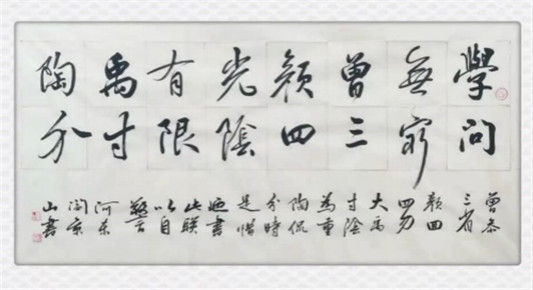 學問
無窮
曾三
顏四
光陰
有限
禹寸
陶分
曾参
三省
顏回
四勿
大禹
寸陰
為重
陶侃
分時
是惜
書
此联
以自
警
河东
京
山書